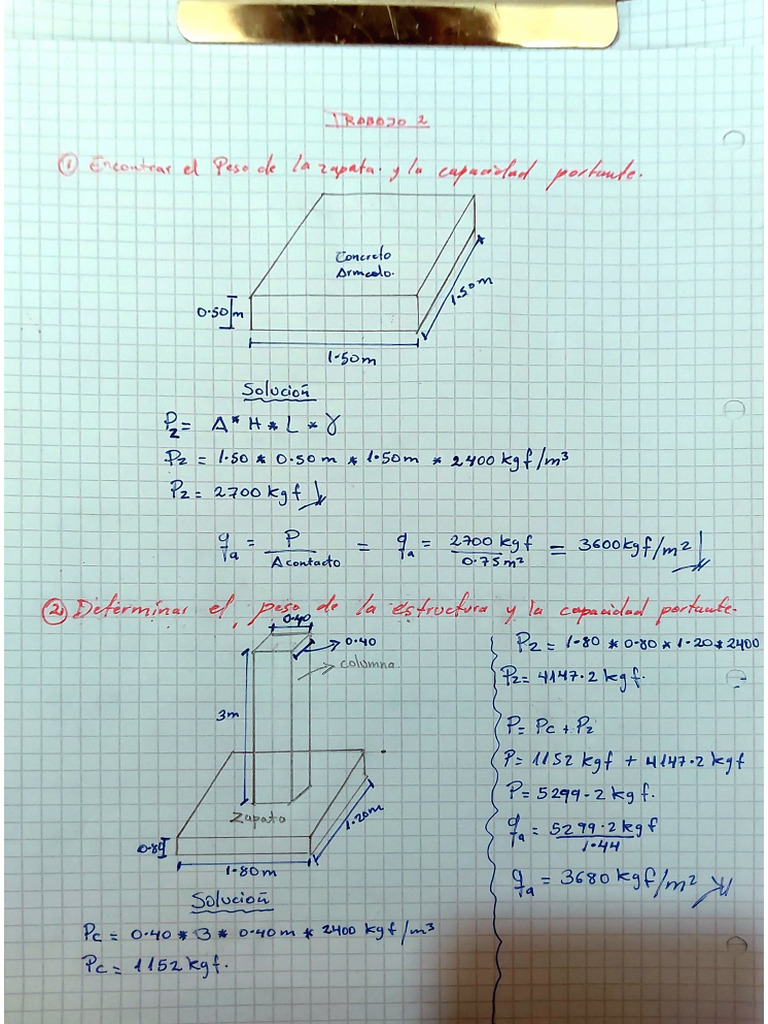 TRABAJO 2
① Encontrar el Peso de la zapata y la capacidad portante.
Concreto
Armado.
0.50 m
1.50m
1.50m
Solución
Pz = A * H * L * γ
Pz = 1.50 * 0.50 m * 1.50m * 2400 kgf/m³
Pz = 2700 kgf
qa = P / Acontacto = qa = 2700 kgf / 0.75m² = 3600kgf/m²
② Determinar el peso de la estructura y la capacidad portante.
0.40
0.40
columna
3m
Zapata
0.80
1.20m
1.80m
Solución
Pc = 0.40 * 3 * 0.40m * 2400 kgf/m³
Pc = 1152 kgf.
Pz = 1.80 * 0.80 * 1.20 * 2400
Pz = 4147.2 kgf.
P = Pc + Pz
P = 1152 kgf + 4147.2 kgf
P = 5299.2 kgf.
qa = 5299.2 kgf / 1.44
qa = 3680 kgf/m²